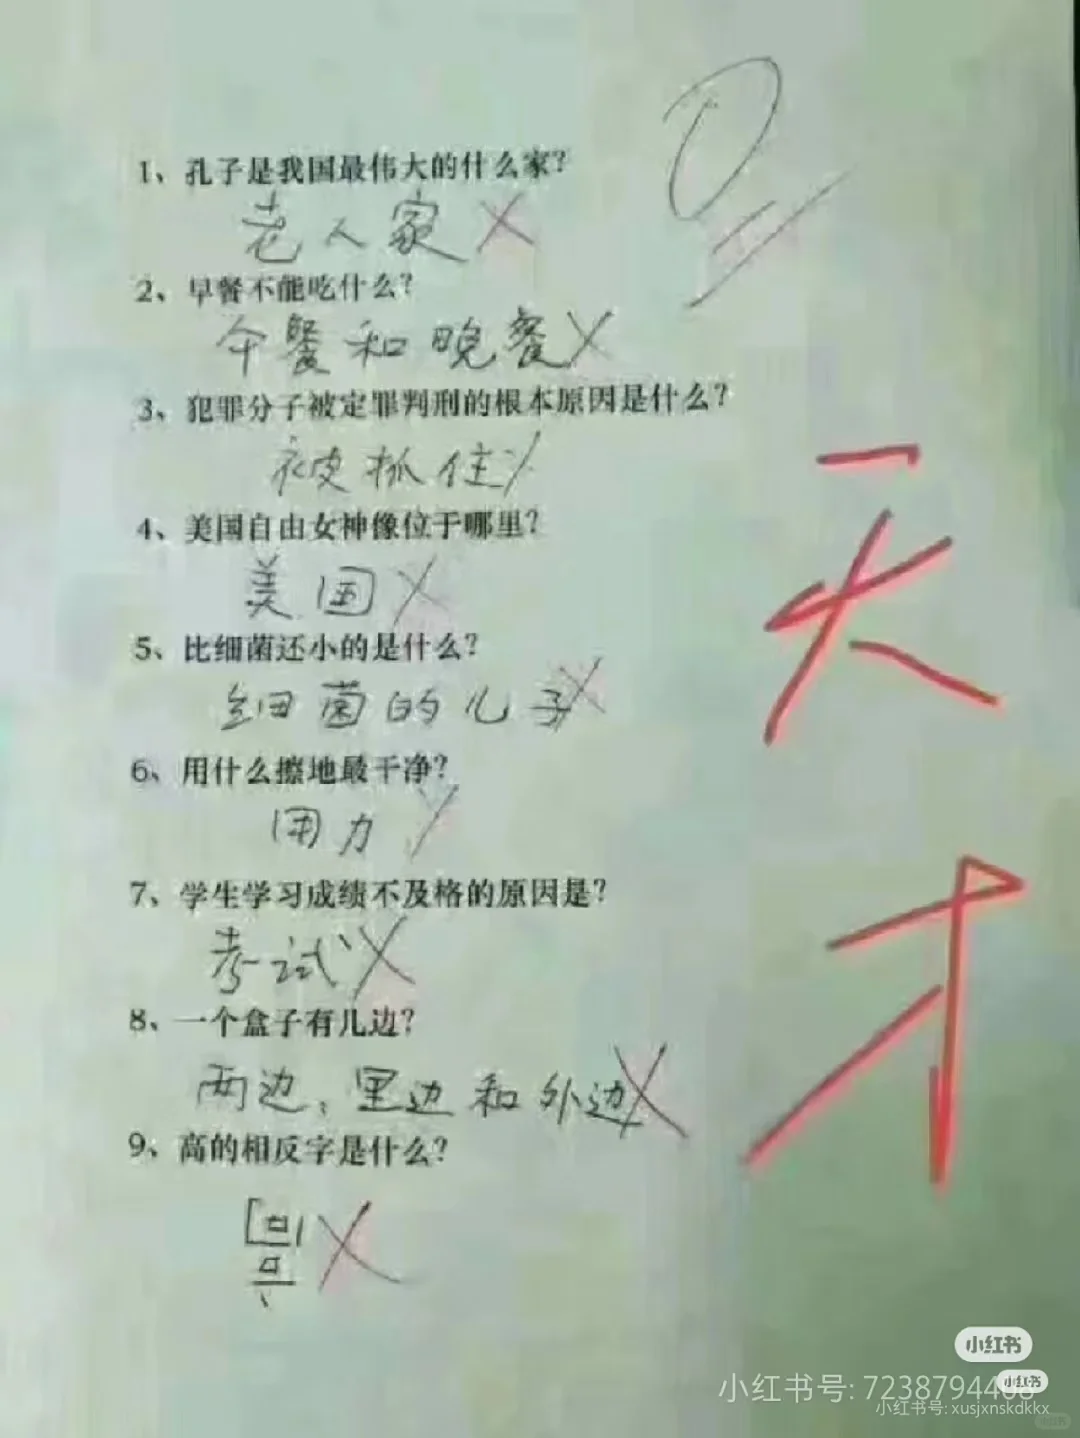 0
1、孔子是我国最伟大的什么家?
老人家
2、早餐不能吃什么?
午餐和晚餐
3、犯罪分子被定罪判刑的根本原因是什么?
被抓住
4、美国自由女神像位于哪里?
美国
5、比细菌还小的是什么?
细菌的儿子
6、用什么擦地最干净?
用力
7、学生学习成绩不及格的原因是?
考试
8、一个盒子有几边?
两边,里边和外边
9、高的相反字是什么?
天才
小红书
小红书
小红书号: xusjxnskdkkx